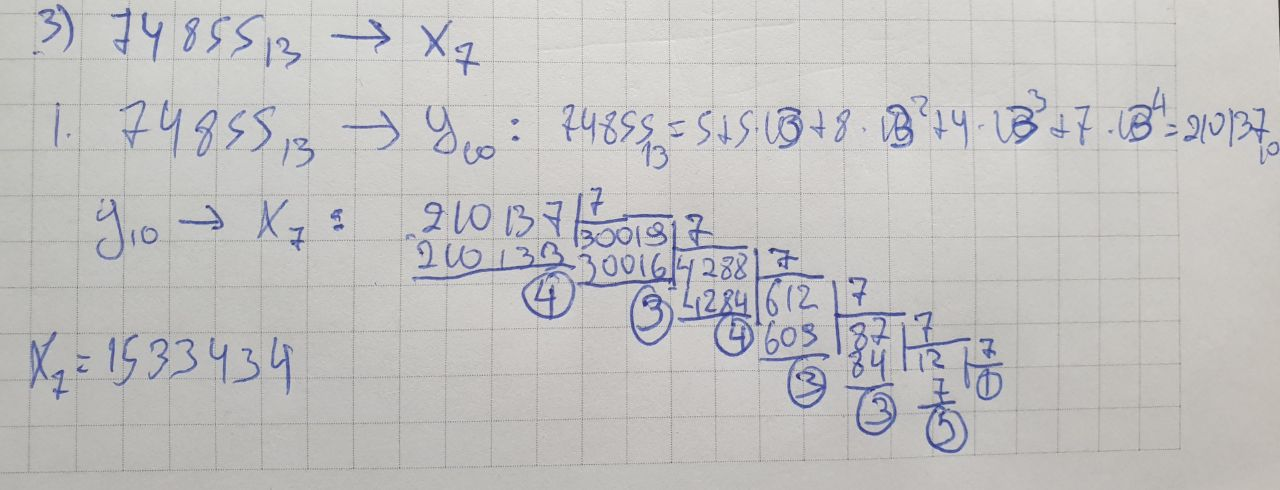 3) 74855₁₃ → X₇
1. 74855₁₃ → y₁₀ : 74855₁₃ = 5+5·13+8·13²+4·13³+7·13⁴=210137₁₀
y₁₀ → X₇ : 210137 7
210133 30019 7
4 30016 4288 7
3 4284 612 7
4 609 87 7
3 84 12 7
3 7 1
5
X₇ = 1533434